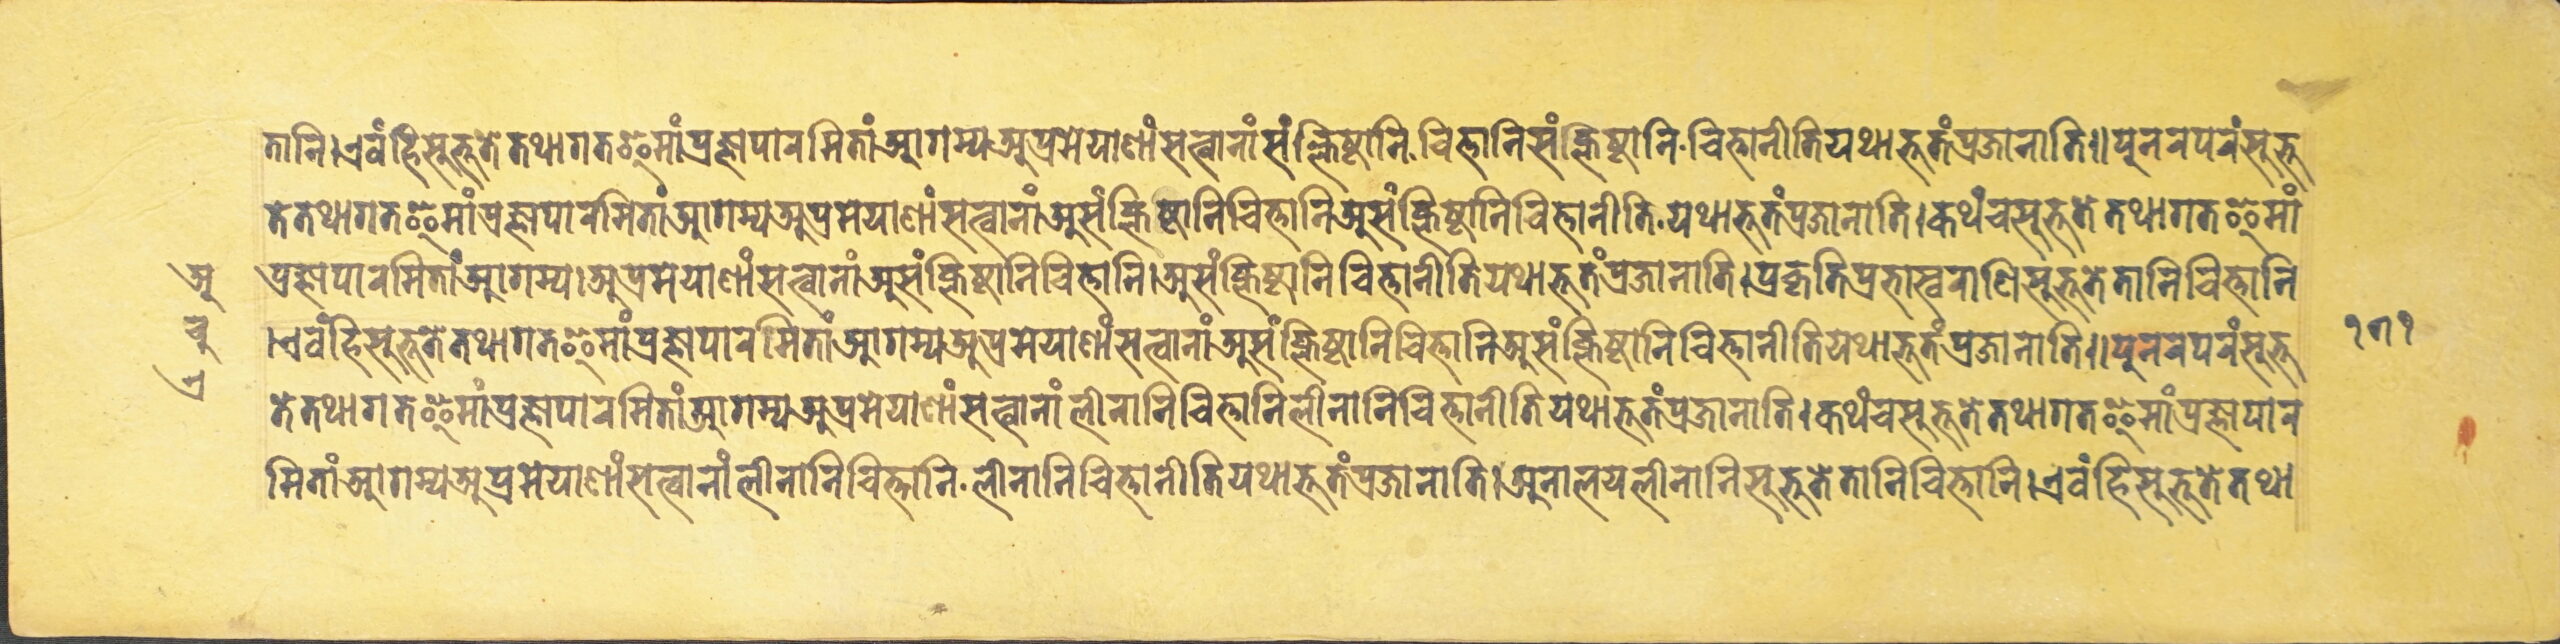 तानि।एवं हि सुभूते तथागत इमां प्रज्ञापारमितां आगम्य अप्रमेयाणां सत्त्वानां संक्लिष्टानि चित्तानि संक्लिष्टानि चित्तानीति यथाभूतं प्रजानाति॥पुनरपरं सुभू
ते तथागत इमां प्रज्ञापारमितां आगम्य अप्रमेयाणां सत्त्वानां असंक्लिष्टानि चित्तानि असंक्लिष्टानि चित्तानीति यथाभूतं प्रजानाति।कथं च सुभूते तथागत इमां
अ
प्रज्ञापारमितां आगम्य।अप्रमेयाणां सत्त्वानां असंक्लिष्टानि चित्तानि।असंक्लिष्टानि चित्तानीति यथाभूतं प्रजानाति।प्रकृतिप्रभास्वराणि सुभूते तानि चित्तानि
।एवं हि सुभूते तथागत इमां प्रज्ञापारमितां आगम्य अप्रमेयाणां सत्त्वानां असंक्लिष्टानि चित्तानि असंक्लिष्टानि चित्तानीति यथाभूतं प्रजानाति॥पुनरपरं सुभू
ए
ते तथागत इमां प्रज्ञापारमितां आगम्य अप्रमेयाणां सत्त्वानां लीनानि चित्तानि लीनानि चित्तानीति यथाभूतं प्रजानाति।कथं च सुभूते तथागत इमां प्रज्ञापार
मितां आगम्य अप्रमेयाणां सत्त्वानां लीनानि चित्तानि लीनानि चित्तानीति यथाभूतं प्रजानाति।अनालयलीनानि सुभूते तानि चित्तानि।एवं हि सुभूते तथा